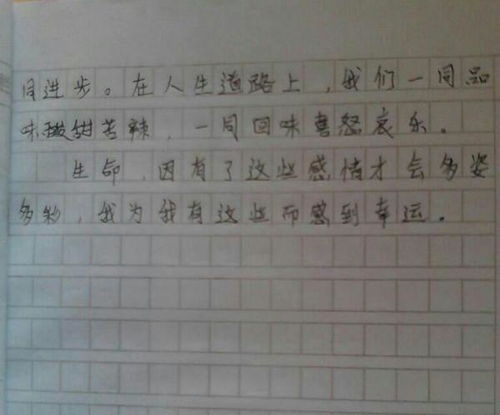 同进步。在人生道路上,我们一同品
味酸甜苦辣,一同回味喜怒哀乐。
生命,因有了这些感情才会多姿
多彩,我为我有这些而感到幸运。